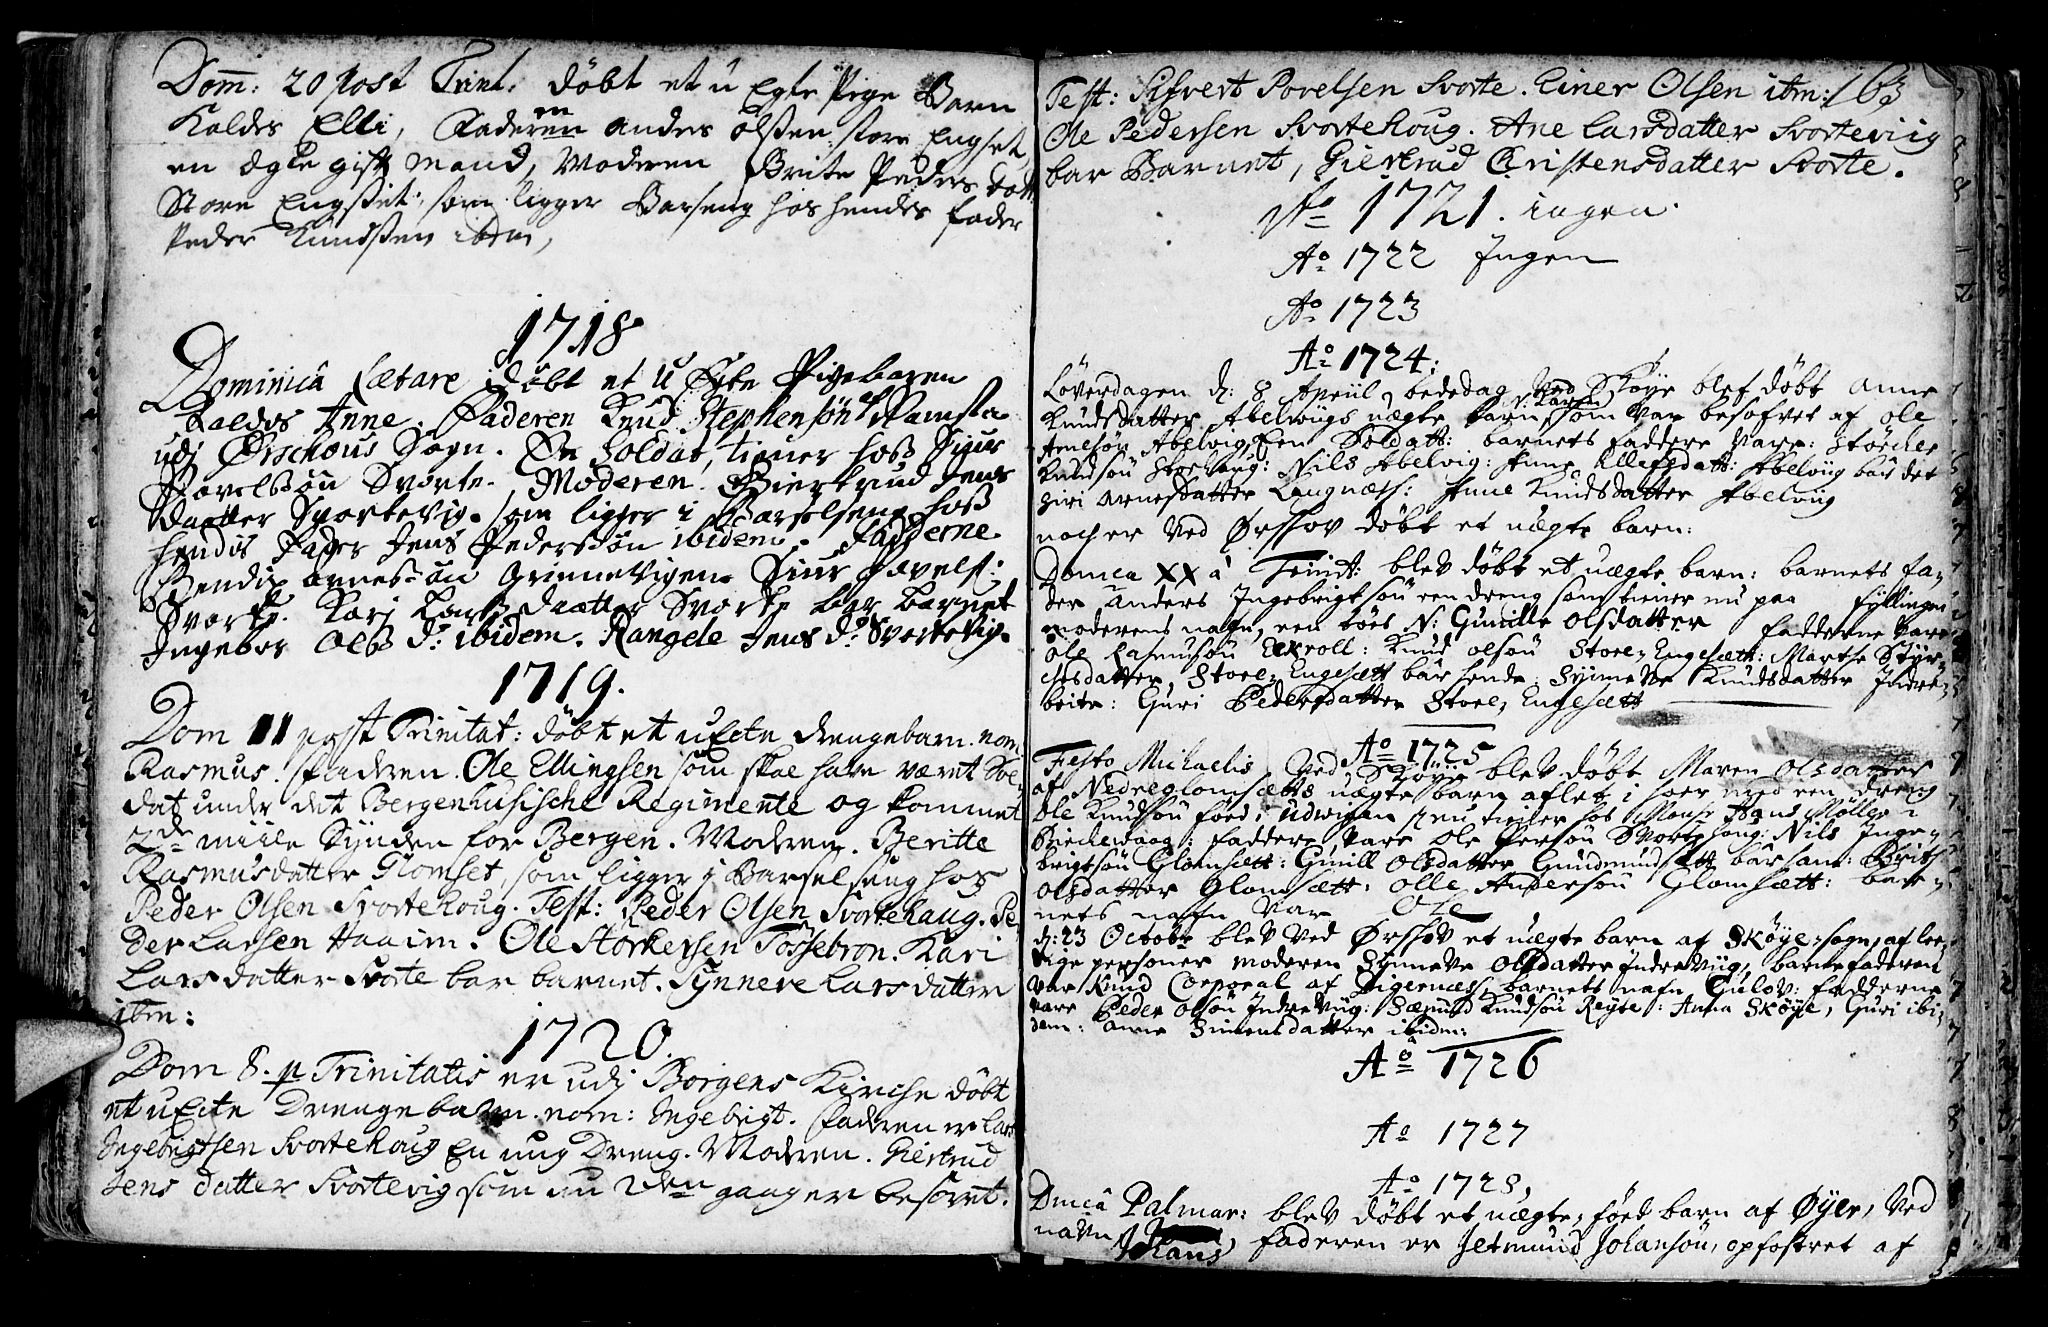 Dom: 20 post Trint: døbt et u Egte Pige Barn
Kaldes Elli, Faderen Anders Olssen store Engset,
en Egte gift Mand, Moderen Brite Peders dott
Store Engsset, som ligger Barseng hos hendes fader
Peder Knudssen ibdm,
1718
Dominicâ Lætare døbt et U Egte Pigebaren
kaldes Anne. Faderen Knud Stephensøn Ramsta
udj Ørschous Sogn. En Soldat, tiener hoss Siur
Povelssøn Svorte. Moderen. Giertrud Jens
daatter Svortevig. som ligger i Barselseng hoss
hendis Fader Jens Pederssøn ibidem. Fadderne
Bendix Arnessøn Grinnevigen. Siur Povels:
Svorte. Karj Larss daatter Svorte bar barnet
Ingebor Olss d: ibidem. Rangele Jens d: Svortevig.
1719.
Dom 11 post Trinitat: døbt et uEcte drengebarn. nom
Rasmus. Faderen. Ole Ellingsen som skal have været Sol
dat under det Bergenhusische Regimente og kommet
2de miile Synden for Bergen. Moderen. Beritte
Rasmusdatter Glomset, som ligger i Barselseng hos
Peder Olsen Svortehoug. Test: Peder Olsen Svortehaug. Pe
der Larsen Haaim. Ole Storkersen Tossebron. Kari
Lars datter Svorte bar barnet. Synneve Lars datter
itm:
1720.
Dom 8. p Trinitatis er udj Borgens Kirche døbt
et uEcte Drengebarn. nom: Ingebrigt. Faderen er Lars
Ingebrigtsen Svortehoug En ung Dreng. Moderen. Giertrud
Jens datter Svortevig som nu 2den gang er besovet.
Test: Sifvert Povelsen Svorte. Einer Olsen itm: 163
Ole Pedersen Svortehoug. Ane Larsdatter Svorteviig
bar Barnet, Giertrud Christensdatter Svorte.
Ao 1721. ingen.
Ao 1722 Ingen
Ao 1723
Ao 1724:
Løverdagen d: 8 Apriil, bededag ved Skøye blef døbt Anne
Knudsdatter Abelviigs uægte barn, Karen som var besofvet af Ole
Arnesøn Abelvig, Een Soldatt: barnets faddere vare: Storcher
Knudsøn Storhaug: Nils Abelvig: Anne Ellefsdatt: Abelviig bar det
Guri Arnesdatter Langnæss: Anne Knudsdatter Abelviig
noch er ved Ørschov døbt et uægte barn:
Domca XX a Trinit: blev døbt et uægte barn: barnets fa-
der Anders Ingebrigtsøn een dreng som tiener nu paa Fyllingen
moderens nafn, een tøes N: Gunille Olsdatter fadderne vare
Ole Rasmusøn Eekroll: Knud Olsøn Store-Engesætt: Marthe Styr-
chesdatter, Store-Engesætt bar hende, Synneve Knudsdatter Indre-
breite: Guri Pedersdatter Store-Engesætt
Ao 1725
Festo Michaelis Ved Skøye blev døbt Maren Olsdatter
af Nedreglomsætts uægte barn aflet i hoer med een dreng
Ole Knudsøn føed i Udvigen og nu tiener hos Monsr Hans Møller i
Brichevaag: faddere vare Ole Persøn Svortehoug: Nils Inge-
brigtsøn Glomsætt: Gunill Olsdatter Gundmundsætt bar ham: Brith
Olsdatter Glomsætt: Olle Andersøn Glomsætt: bar-
nets nafn var Ole
d: 23 Octobr blev ved Ørschov et uægte barn af Skøye-sogn, af lee-
dige personer moderen Synneve Olsdatter Indreviig, barnefaderen
var Knud Corporal af Digernæs, barnets nafn Gulov: fadderne
vare Peder Olsøn Indreviig: Sæmund Knudsøn Reyte: Anna Skøye, Guri ibi-
dem: Anne Simensdatter ibidm:
Ao 1726
Ao 1727
Ao 1728,
Dmcâ Palmar: blev døbt et uægte, føet barn af Øyer, ved
navn Johans, Faderen er Jetmund Johansøn, opfostret af